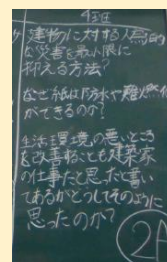 4王田
建物に対する人為的
な災害を最小限に
抑える方法?
なぜ紙は防水や難燃化
ができるのか?
生活環境の悪いところ
を改善することも建築家
の仕事だと思ったと書い
てあるがどうしてそのように
思ったのか?
2